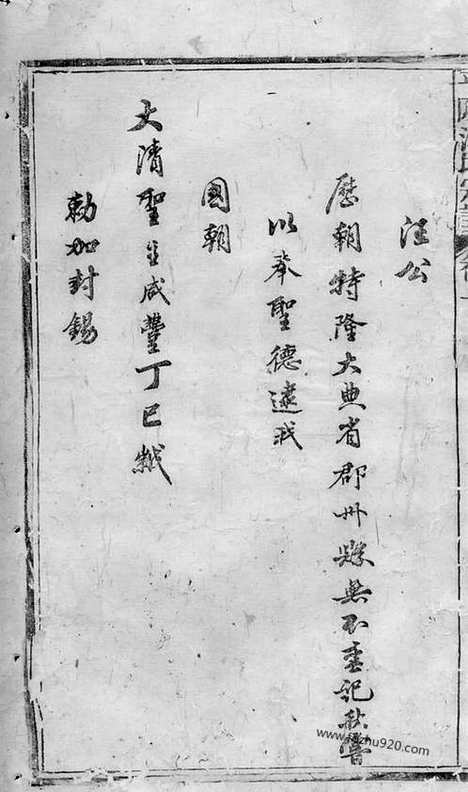 汪公
歷朝特隆大典省郡州縣無不重祀秋嘗
以奉聖德逮我
國朝
大清聖主咸豐丁巳
勅加封錫
www.kezhu920.com